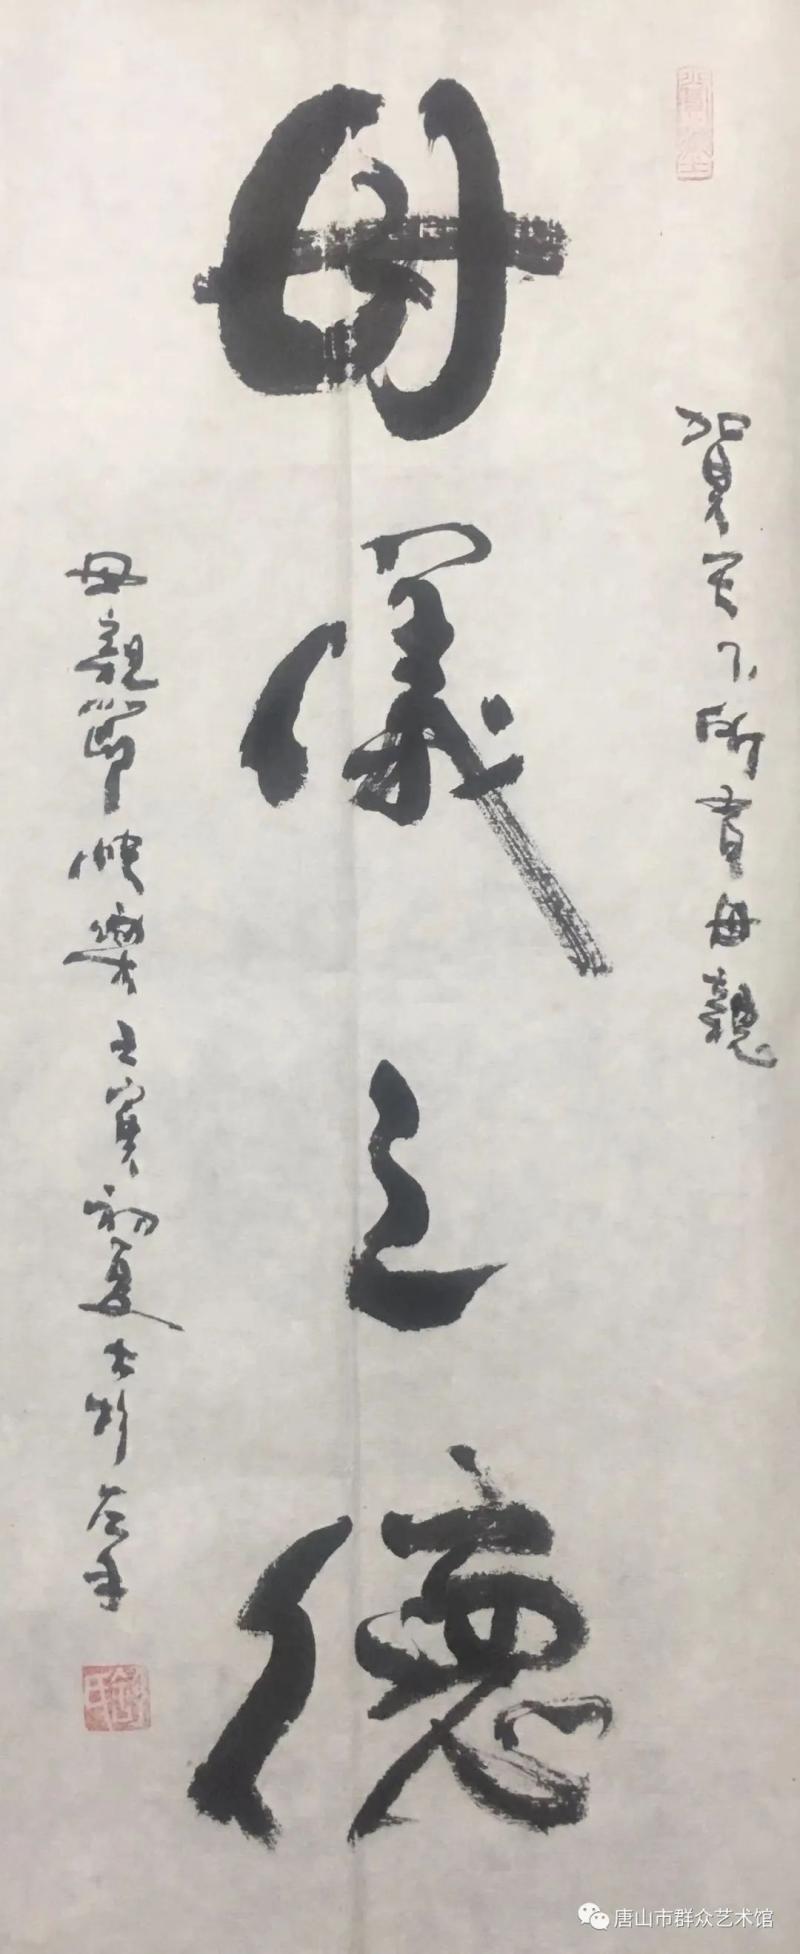 賀天下所有母親
母儀之德
母親節快樂 壬寅初夏大彬左手
唐山市群众艺术馆